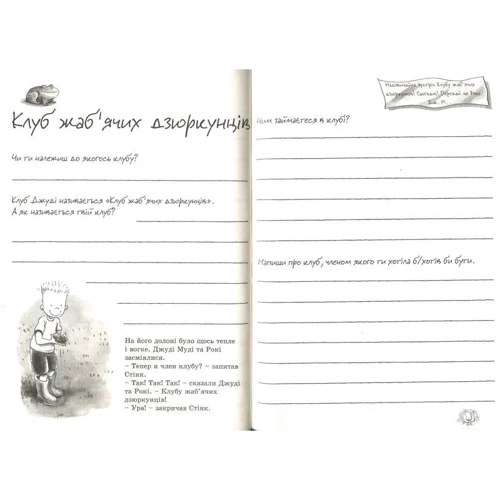 Клуб жаб'ячих дзюркунців
Чи ти належиш до якогось клубу?
Клуб Джуді називається «Клуб жаб'ячих дзюркунців».
А як називається твій клуб?
На його долоні було щось тепле
і вогке. Джуді Муді та Рокі
засміялися.
– Тепер я член клубу? – запитав
Стінк.
– Так! Так! Так! – сказали Джуді
та Рокі. – Клубу жаб'ячих
дзюркунців!
– Ура! – закричав Стінк.
Клубу жаб'ячих
дзюркунців!
Чим займаєтеся в клубі?
Напиши про клуб, членом якого ти хотіла б/хотів би бути.